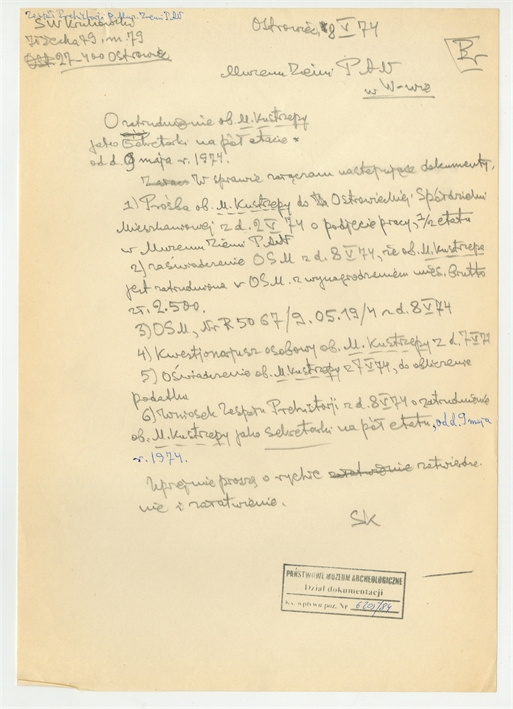 Zespół Prehistorji B. Muz. Ziemi PAN
S W Krukowski
27-400 Ostrowiec
Ostrowiec, 8 V 74
Muzeum Ziemi PAN
w W-wie
O zatrudnienie ob. M. Kustrzepy
jako sekretarki na pół etacie
od d. 9 maja r. 1974.
W sprawie załączam następujące dokumenty.
1) Prośba ob. M. Kustrzepy do Ostrowieckiej Spółdzielni
Mieszkaniowej z d. 2 V 74 o podjęcie pracy, 1/2 etatu
w Muzeum Ziemi PAN
2) zaświadczenie OSM z d. 8 V 74, że ob. M. Kustrzepa
jest zatrudniona w OSM. z wynagrodzeniem mies. Brutto
zł. 2.500.
3) OSM, Nr R 5067/2.05.19/4 z d. 8 V 74
4) Kwestjonariusz osobowy ob. M. Kustrzepy z d. 7 V 74
5) Oświadczenie ob. M. Kustrzepy z 7 V 74, do obliczenia
podatku
6) Wniosek Zespołu Prehistorji z d. 8 V 74 o zatrudnienie
ob. M. Kustrzepy jako sekretarki na pół etatu, od d. 9 maja
r. 1974.
Uprzejmie proszę o rychłe zatwierdze
nie i załatwienie.
SK
PAŃSTWOWE MUZEUM ARCHEOLOGICZNE
Dział dokumentacji
Ks. wpływu poz. Nr